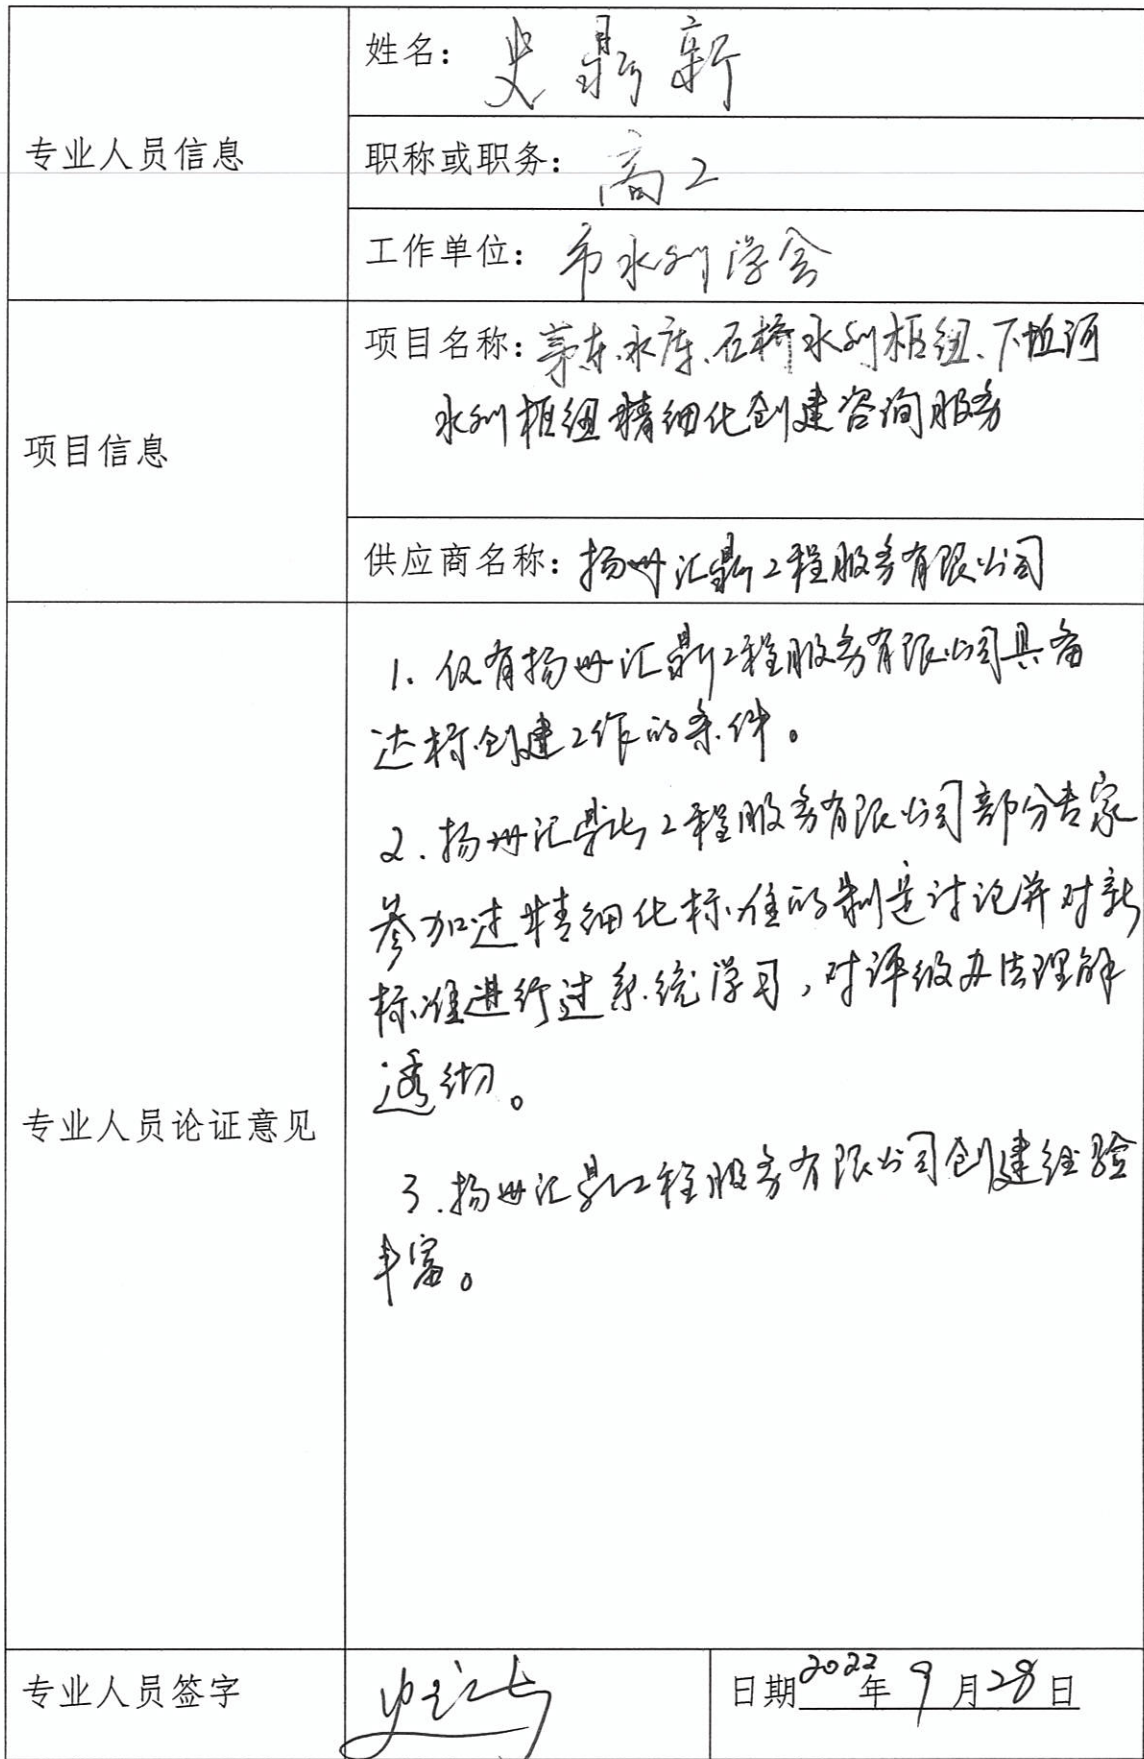 专业人员信息
姓名：史鼎新
职称或职务：高工
工作单位：市水利学会
项目信息
项目名称：茅东水库、石桥水利枢纽、下坵河
水利枢纽精细化创建咨询服务
供应商名称：扬州汇鼎工程服务有限公司
专业人员论证意见
1. 仅有扬州汇鼎工程服务有限公司具备
达标创建工作的条件。
2. 扬州汇鼎工程服务有限公司部分专家
参加过精细化标准的制定讨论并对新
标准进行过系统学习，对评级办法理解
透彻。
3. 扬州汇鼎工程服务有限公司创建经验
丰富。
专业人员签字
日期2022年9月28日